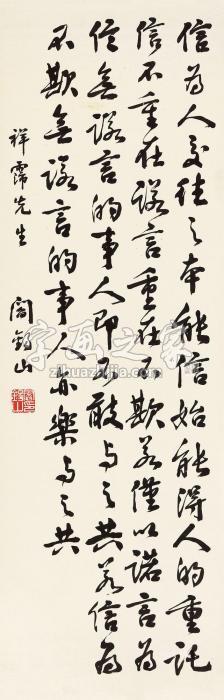 信為人交往之本能信始能得人的重託
信不重在諾言重在不欺若僅以諾言為
信無諾言的事人即不敢与之共若信為
不欺無諾言的事人亦樂与之共
祥霈先生
閻錫山
字画之家
zihuazhijia.com